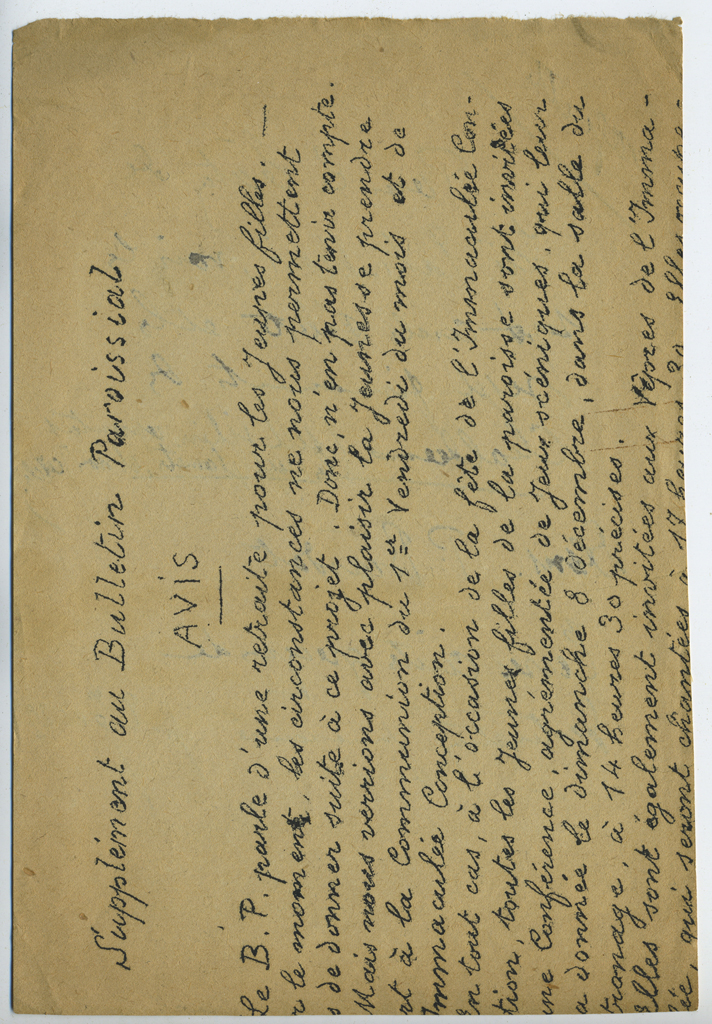 Supplément au Bulletin Paroissial
AVIS
Le B.P. parle d'une retraite pour les Jeunes filles. —
r le moment, les circonstances ne nous permettent
s de donner suite à ce projet. Donc, n'en pas tenir compte.
Mais nous verrions avec plaisir la Jeunesse prendre
rt à la Communion du 1er Vendredi du mois et de
Immaculée Conception.
En tout cas, à l'occasion de la fête de l'Immaculée Con-
tion, toutes les Jeunes filles de la paroisse sont invitées
une Conférence, agrémentée de Jeux scéniques, qui leur
a donnée le dimanche 8 décembre, dans la salle du
tronage, à 14 heures 30 précises.
Elles sont également invitées aux Vêpres de l'Imma-
lée, qui seront chantées à 17 heures 30